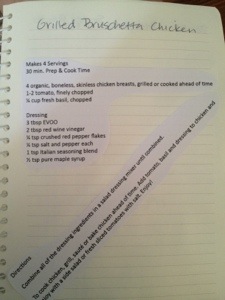 Grilled Bruschetta Chicken
Makes 4 Servings
30 min. Prep & Cook Time
4 organic, boneless, skinless chicken breasts, grilled or cooked ahead of time
1-2 tomato, finely chopped
¼ cup fresh basil, chopped
Dressing
3 tbsp EVOO
2 tbsp red wine vinegar
¼ tsp crushed red pepper flakes
½ tsp salt and pepper each
1 tsp Italian seasoning blend
½ tsp pure maple syrup
Directions
Combine all of the dressing ingredients in a salad dressing mixer until combined.
To cook chicken, grill, sauté or bake chicken ahead of time. Add tomato, basil and dressing to chicken and
with a side salad or fresh sliced tomatoes with salt. Enjoy!